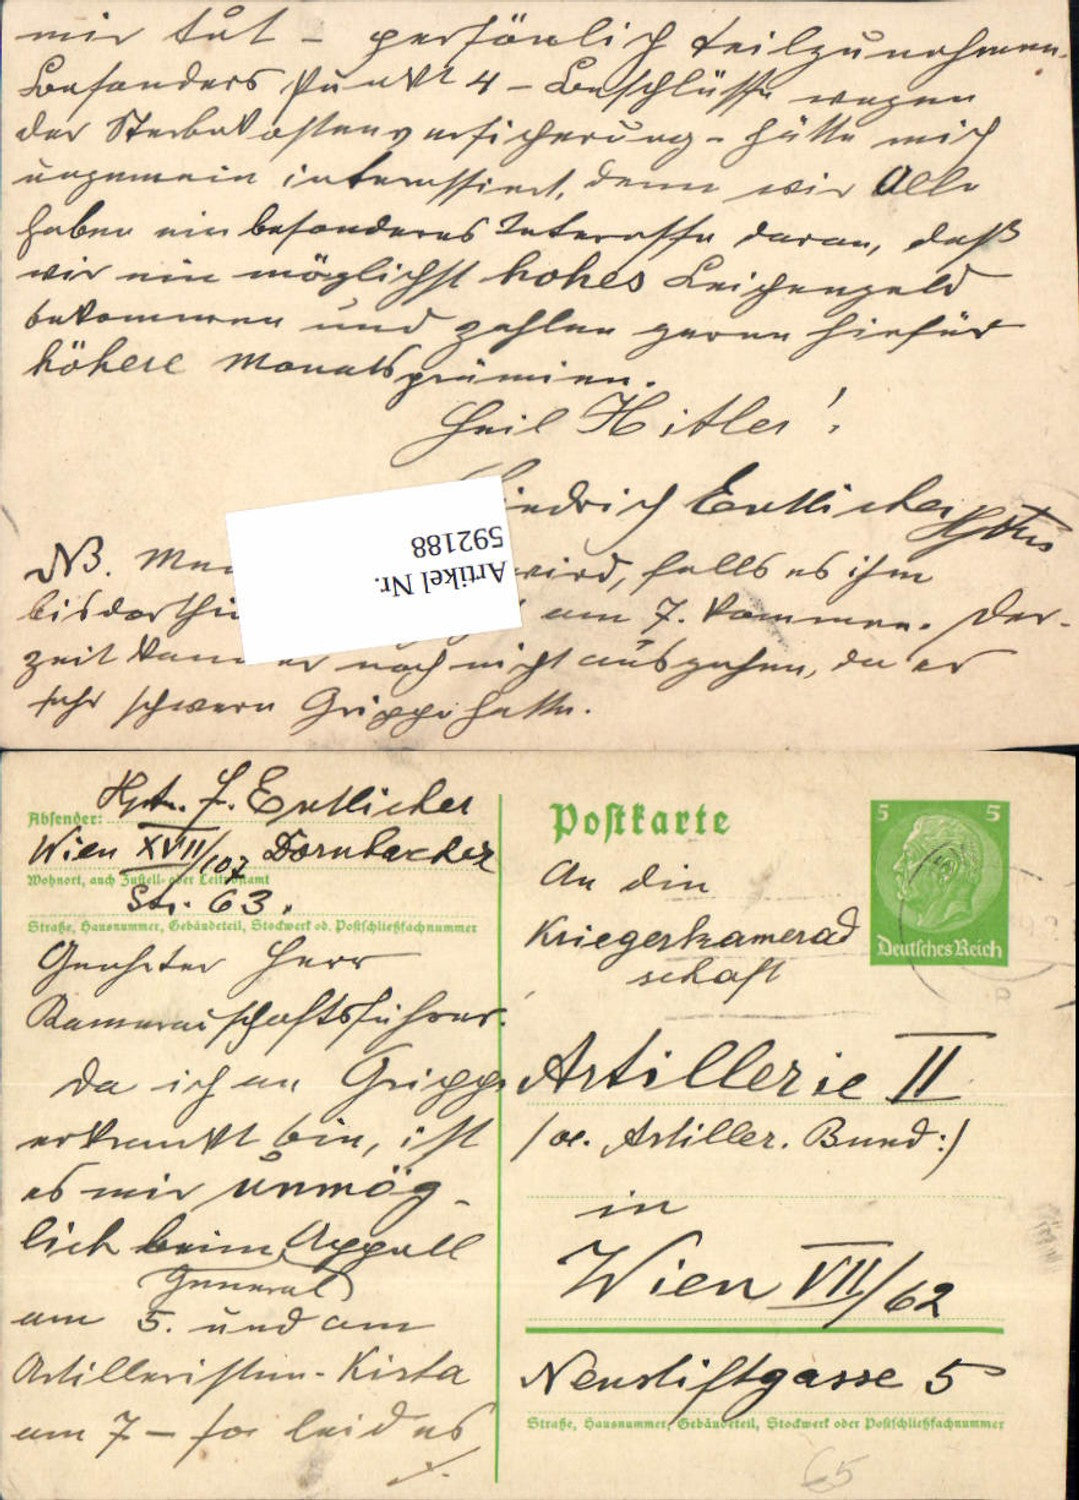 mir tut – persönlich teilzunehmen.
Besonders Punkt 4 – Beschlüsse wegen
der Sterbekostenversicherung – hätte mich
ungemein interessiert, denn wir Alle
haben ein besonderes Interesse daran, daß
wir ein möglichst hohes Leichengeld
bekommen und zahlen gerne hiefür
höhere Monatsprämien.
Heil Hitler!
Entlicher Hptm
Artikel Nr.
592188
NB. wird, falls es ihm
bisdorthin am 7. kommen. Der-
zeit kann er noch nicht ausgehen, da er
sehr schwere Grippe hatte.
Hptm. F. Entlicher
Absender:
Wien XVII/107 Dornbacher
Wohnort, auch Zustell- oder Leitpostamt
Str. 63.
Straße, Hausnummer, Gebäudeteil, Stockwerk od. Postschließfachnummer
Geehrter Herr
Kameradschaftsführer.
Da ich an Grippe
erkrankt bin, ist
es mir unmög-
lich beim Appell
General
am 5. und am
Artilleristen-Kirta
am 7 – so leid es
./.
Postkarte
5 5
Deutsches Reich
An die
Kriegerkamerad
schaft
Artillerie II
/oe. Artiller. Bund:/
in
Wien VII/62
Neustiftgasse 5
Straße, Hausnummer, Gebäudeteil, Stockwerk oder Postschließfachnummer
65